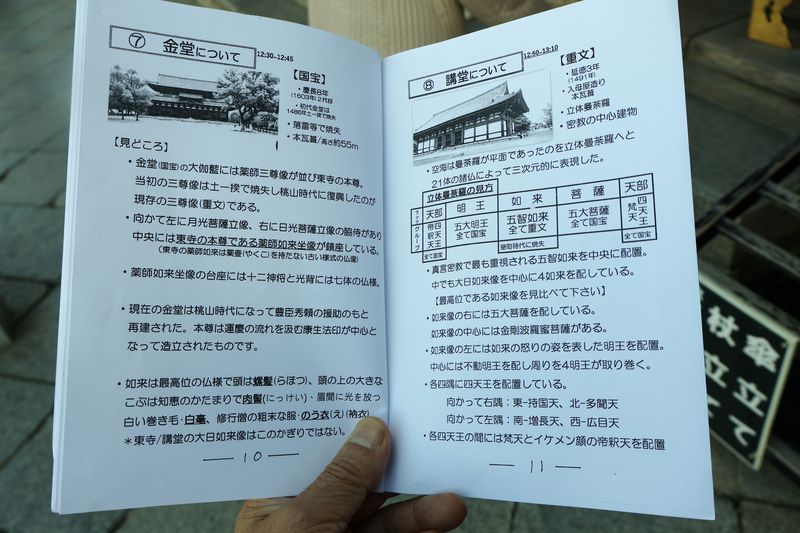 ⑦ 金堂について
12:30-12:45
【国宝】
・慶長8年
(1603年)2代目
・初代金堂は
1486年土一揆で焼失
・落雷等で焼失
・本瓦葺/高さ約55m
【見どころ】
・金堂(国宝)の大伽藍には薬師三尊像が並び東寺の本尊。
当初の三尊像は土一揆で焼失し桃山時代に復興したのが
現存の三尊像(重文)である。
・向かて左に月光菩薩立像、右に日光菩薩立像の脇侍があり
中央には東寺の本尊である薬師如来坐像が鎮座している。
(東寺の薬師如来は薬壷(やくこ)を持たない古い様式の仏像)
・薬師如来坐像の台座には十二神将と光背には七体の仏様。
・現在の金堂は桃山時代になって豊臣秀頼の援助のもと
再建された。本尊は運慶の流れを汲む康生法印が中心と
なって造立されたものです。
・如来は最高位の仏様で頭は螺髪(らほつ)、頭の上の大きな
こぶは知恵のかたまりで肉髻(にっけい)・眉間に光を放つ
白い巻き毛・白毫、修行僧の粗末な服・のう衣(え)(衲衣)
*東寺/講堂の大日如来像はこのかぎりではない。
10
⑧ 講堂について
12:50-13:10
【重文】
・延徳3年
(1491年)
・入母屋造り
本瓦葺
・立体曼荼羅
・密教の中心建物
・空海は曼荼羅が平面であったのを立体曼荼羅へと
21体の諸仏によって三次元的に表現した。
立体曼荼羅の見方
ランク 天部 明王 如来 菩薩 天部
グループ 帝釈天 四天王 五大明王 五智如来 五大菩薩 梵天 四天王
全て国宝 全て国宝 全て重文 全て国宝 全て国宝
室町時代に焼失
・真言密教で最も重視される五智如来を中央に配置。
中でも大日如来像を中心に4如来を配している。
【最高位である如来像を見比べて下さい】
・如来像の右には五大菩薩を配している。
如来像の中心には金剛波羅蜜菩薩がある。
・如来像の左には如来の怒りの姿を表した明王を配置。
中心には不動明王を配し周りを4明王が取り巻く。
・各四隅に四天王を配置している。
向かって右隅:東-持国天、北-多聞天
向かって左隅:南-増長天、西-広目天
・各四天王の間には梵天とイケメン顔の帝釈天を配置
11
傘
杖
立
立
て